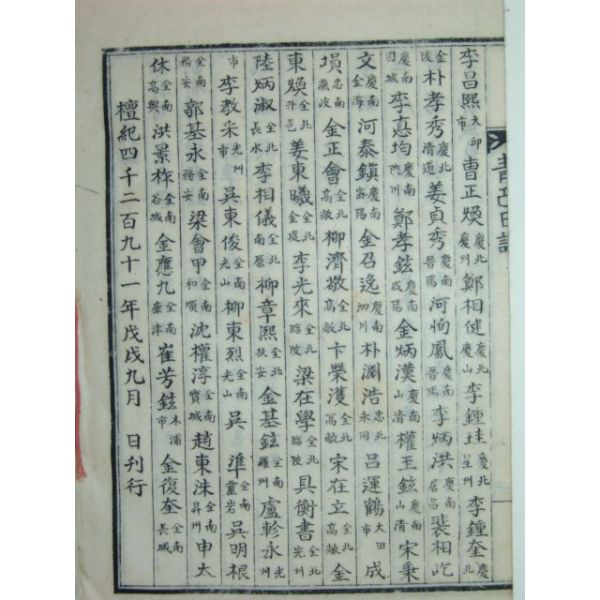 李昌熙大邱市 曹正煥慶北慶州 鄭相健慶北慶山 李鍾珪慶北星州 李鍾奎慶北
金陵 朴孝秀慶北清道 姜貞秀慶南晋陽 河恂鳳慶南晋陽 李炳洪慶南居昌 裴相屹
固城 李憙均慶南陜川 鄭孝鉉慶南咸陽 金炳漢慶南山清 權玉鉉慶南山清 宋秉
文慶南金海 河泰鎭慶南密陽 金召逸慶南泗川 朴淵浩忠北永同 呂運鶴大田市 成
塤忠南燕岐 金正會全北高敞 柳濟敬全北高敞 卞榮濩全北高敞 宋在立全北高敞 金
東煥全北井邑 姜東曦全北金堤 李光來全北臨陂 梁在學全北臨陂 具衡書全北光州
陸炳淑全北長水 李相儀全北南原 柳章熙全北扶安 金基鉉全南羅州 盧軫永光州
市 李敎采光州 吳東俊全南光山 柳東烈全南光山 吳準全南靈岩 吳明根
全南務安 郭基永全南務安 梁會甲全南和順 沈權淳全南寶城 趙東洙全南昇州 申大
休全南高興 洪景柞全南谷城 金應九全南康津 崔芳鉉木浦市 金復奎全南長城
檀紀四千二百九十一年戊戌九月 日刊行